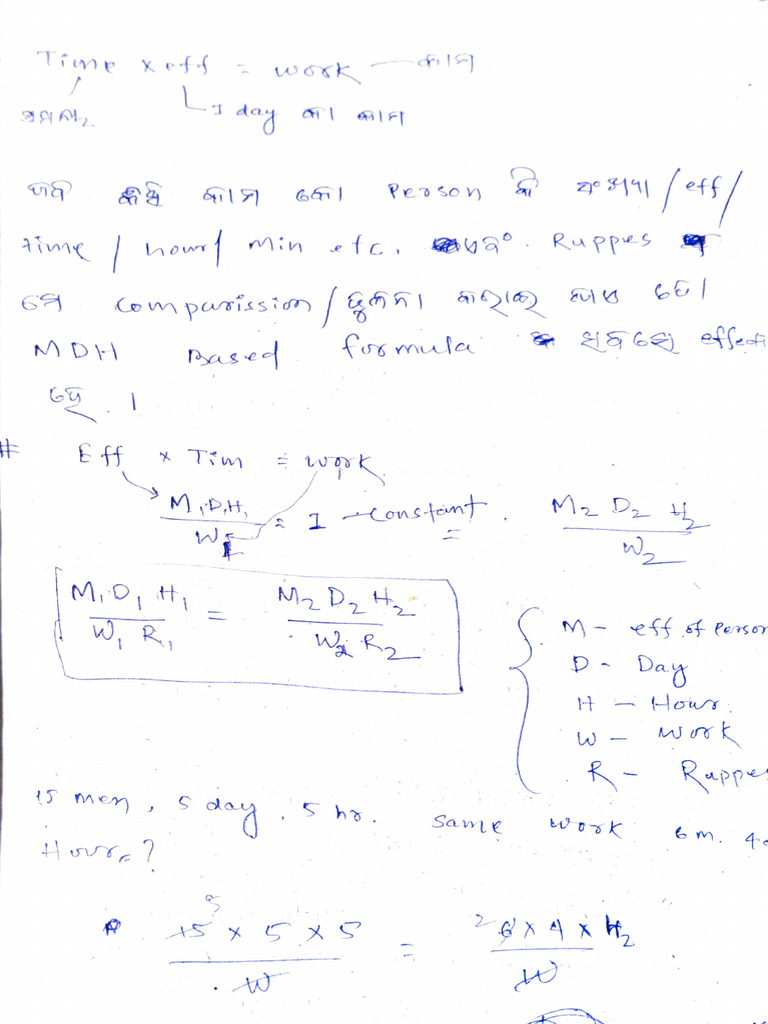 Time × eff = work — କାମ
ସମୟ
1 day କା କାମ
ଯଦି କିସି କାମ କୋ Person କି ସଂଖ୍ୟା / eff /
time / hour / min etc. Ruppes
ସେ comparission / ତୁଳନା କରାଇ ଯାଏ ତୋ
MDH Based formula ସବସେ effecti
ହେ ।
# Eff × Tim = work
M₁D₁H₁ / W₁ = 1 - constant. M₂ D₂ H₂ / W₂
M₁D₁H₁ / W₁ R₁ = M₂ D₂ H₂ / W₂ R₂
M - eff of Person
D - Day
H - Hour
W - Work
R - Ruppe
15 men, 5 day, 5 hr. same work 6 m. 4
Hour = ?
15 5 × 5 × 5 / W = 2 6 × 4 × H₂ / W